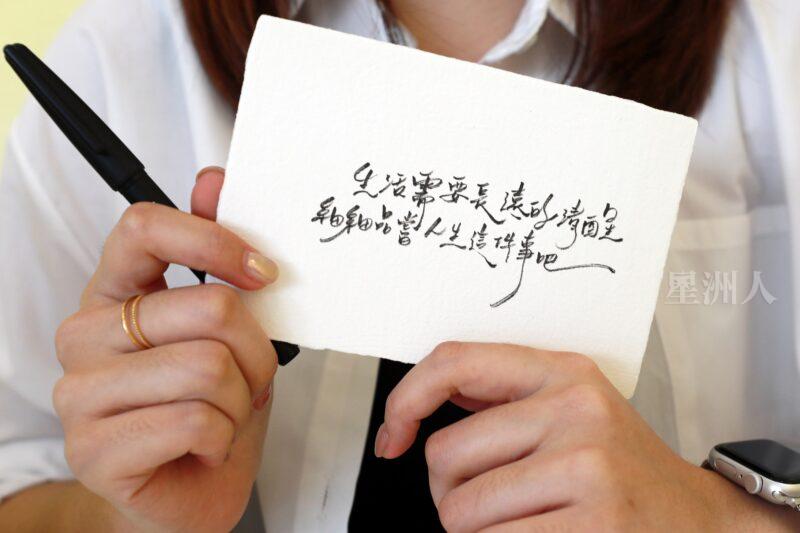 生活需要長遠的清醒
細細品嘗人生這件事吧
星洲人